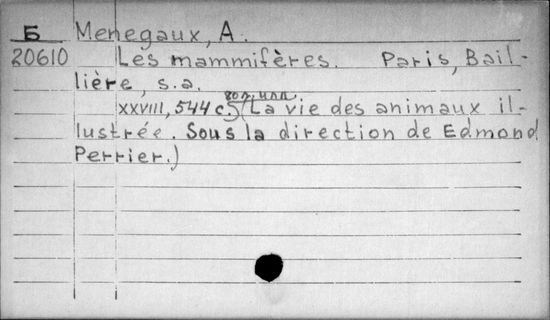 Б Menegaux, A.
20610 Les mammifères. Paris, Bail-
lière, s.a.
80 л. илл.
XXVIII, 544 с. (La vie des animaux il-
lustrée. Sous la direction de Edmond
Perrier.)